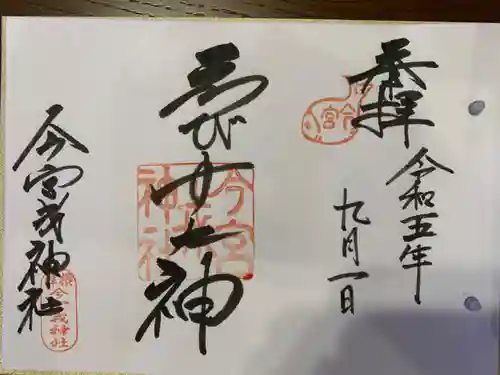 奉拝
令和五年
九月一日
ゑびす大神
今宮戎神社
今宮
今宮戎神社